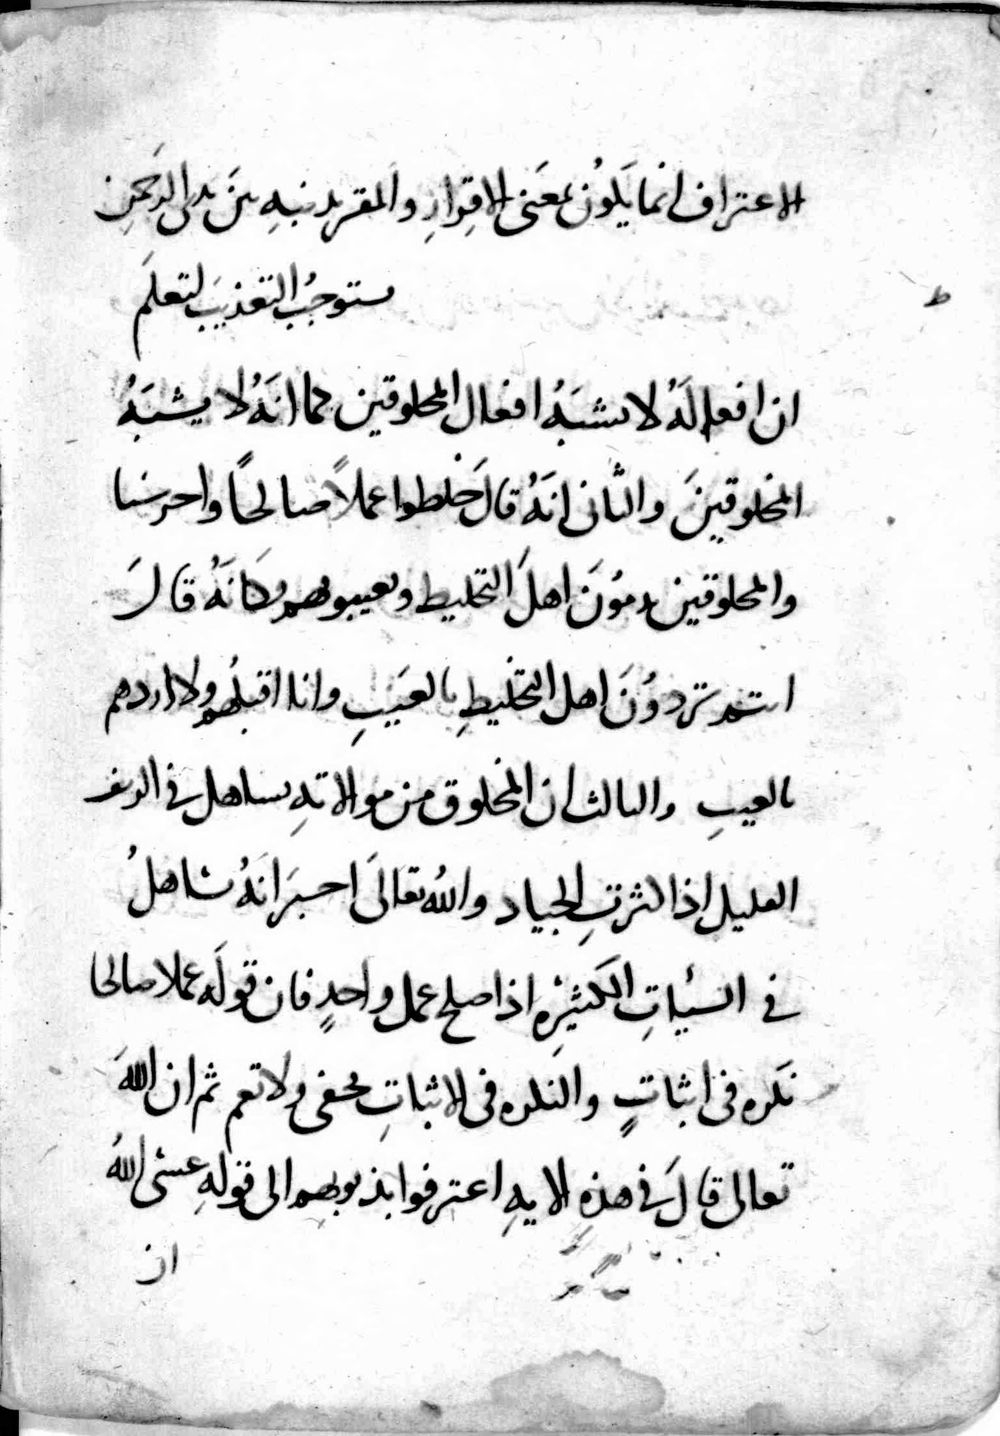 الاعتراف انما يكون بمعنى الاقرار والمقر بذنبه بين يدى الرحمن
ط
يستوجب التعذيب لتعلم
ان افعاله لا تشبه افعال المخلوقين كما انه لا يشبه
المخلوقين والثانى انه قال خلطوا عملا صالحا واخر سيا
والمخلوقين يذمون اهل التخليط ويعيبونهم وكانه قال
انتم تردون اهل التخليط بالعيب وانا اقبلهم ولا اردهم
بالعيب والثالث ان المخلوق من موالاته يساهل فى
القليل اذا كثرت الجياد والله تعالى اخبر انه تساهل
فى السيات الكثيره اذا صلح عمل واحد فان قوله عملا صالحا
نكره فى اثبات والنكره فى الاثبات تخص ولا تعم ثم ان الله
تعالى قال فى هذه الايه اعترفوا بذنوبهم الى قوله عسى الله
ان